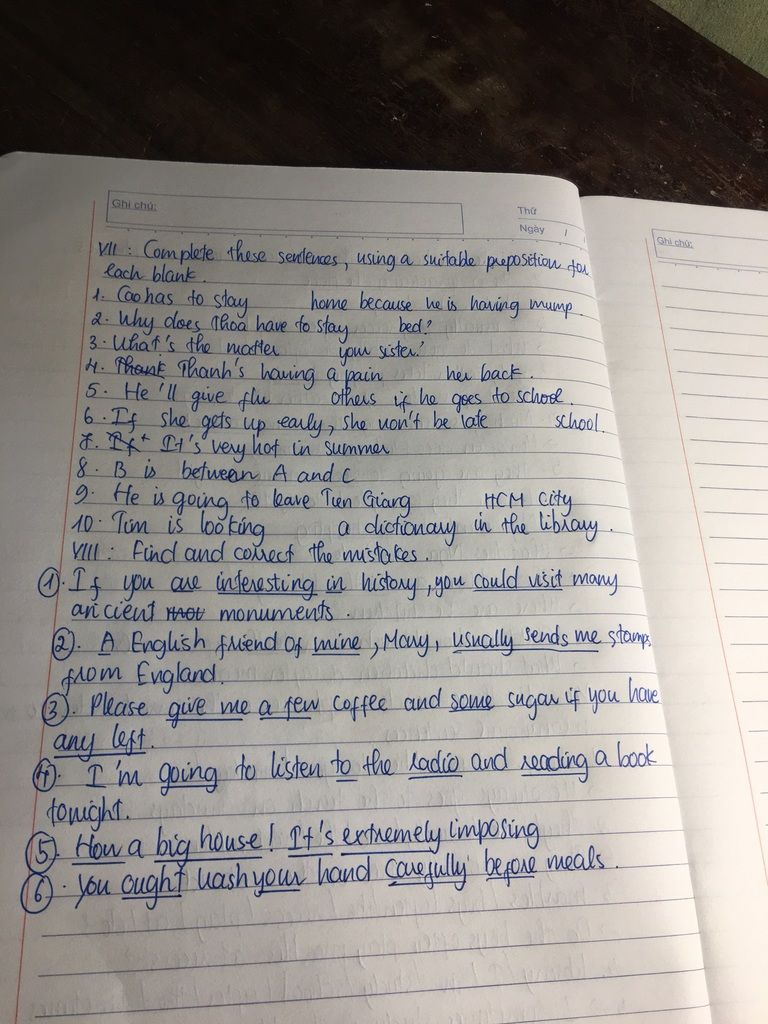 Ghi chú:
Thứ
Ngày / /
Ghi chú:
VII : Complete these sentences, using a suitable preposition for
each blank.
1. Cao has to stay home because he is having mump.
2. Why does Thoa have to stay bed?
3. What's the matter your sister?
4. Thank Thanh's having a pain her back.
5. He'll give flu others if he goes to school.
6. If she gets up early, she won't be late school.
7. If It's very hot in summer
8. B is between A and C
9. He is going to leave Tien Giang HCM City
10. Tim is looking a dictionary in the library.
VIII : Find and correct the mistakes.
1. If you are interesting in history, you could visit many
ancient monuments.
2. A English friend of mine, Mary, usually sends me stamps
from England.
3. Please give me a few coffee and some sugar if you have
any left.
4. I'm going to listen to the radio and reading a book
tonight.
5. How a big house! It's extremely imposing
6. You ought wash your hand carefully before meals.